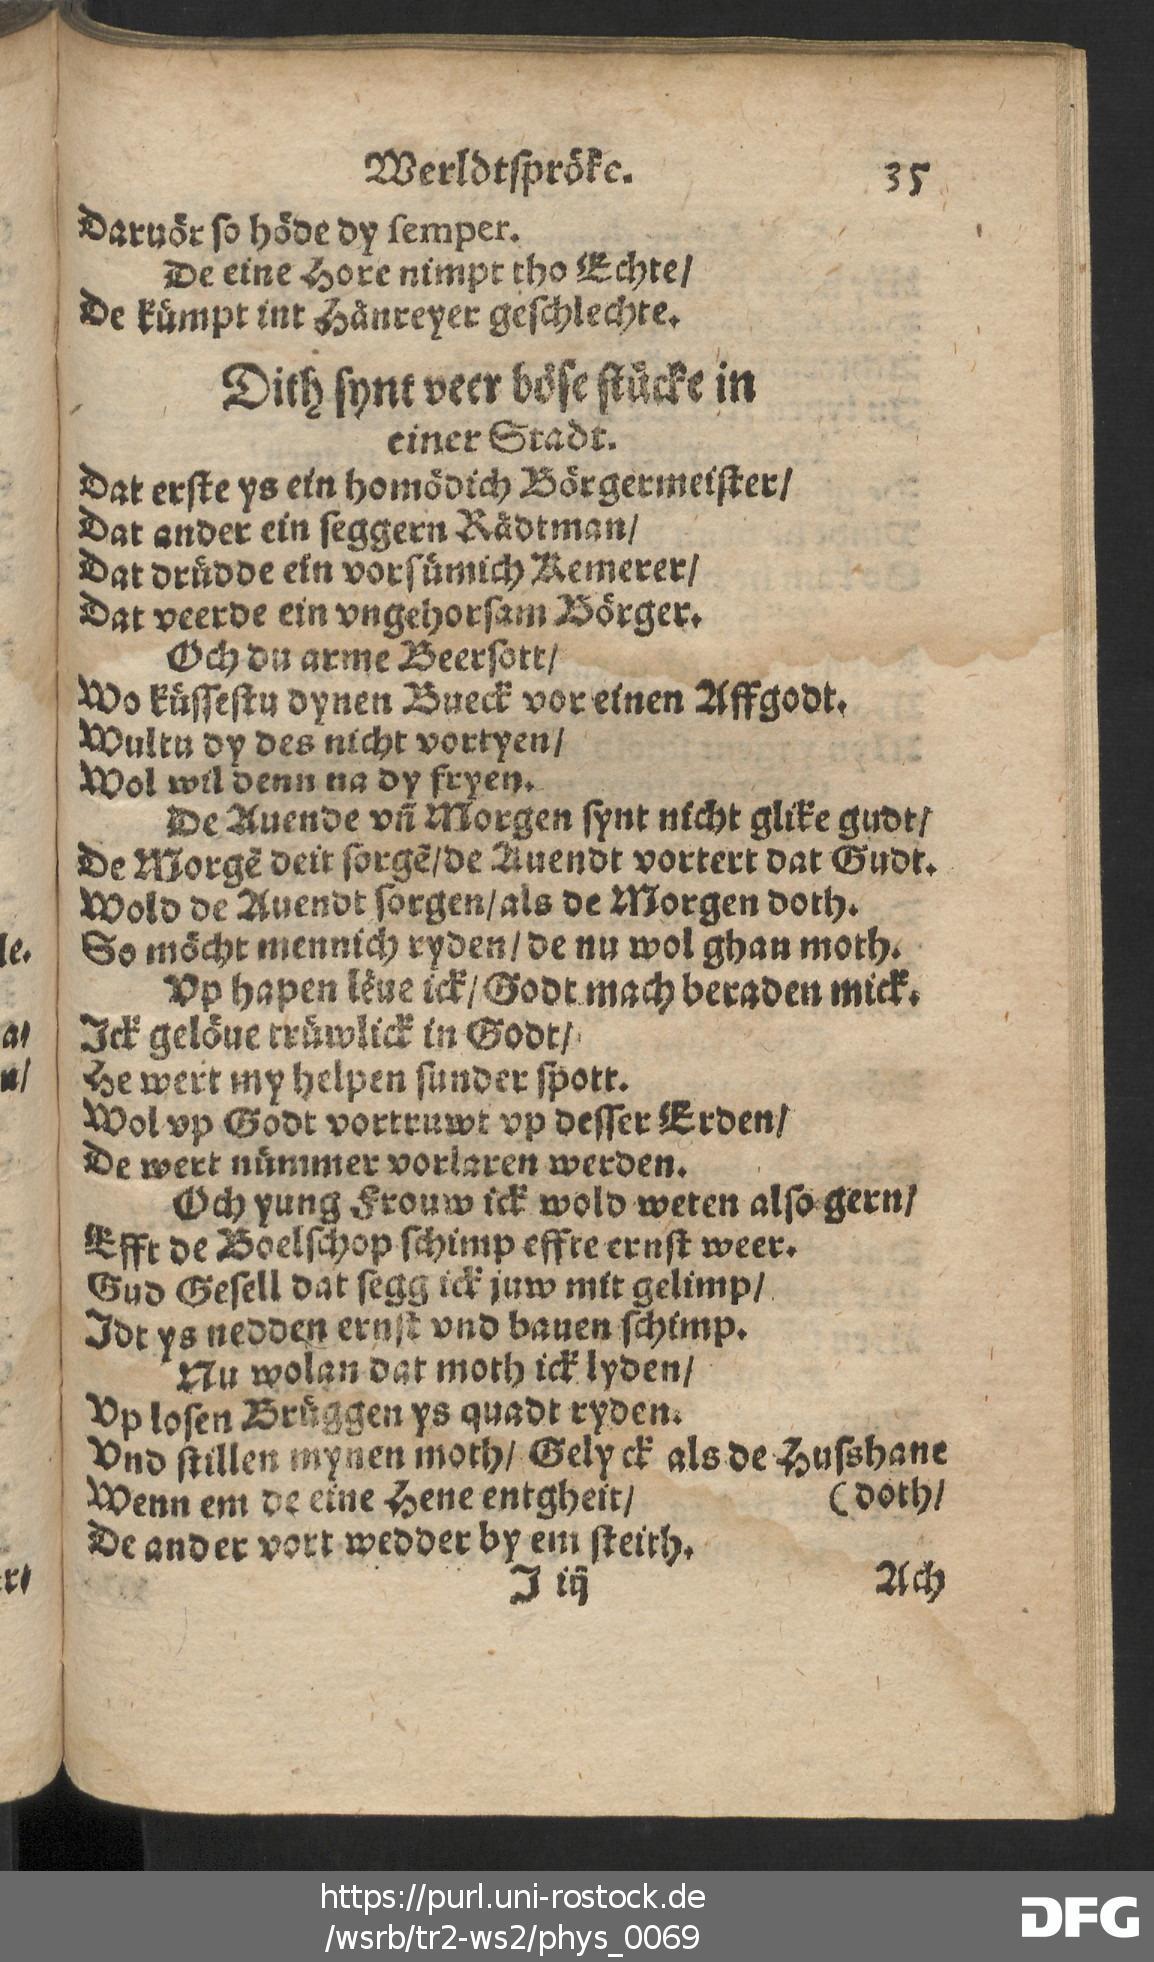 Werldtspröke. 35
Daruör so höde dy semper.
De eine Hore nimpt tho Echte/
De kümpt int Hänreyer geschlechte.
Dith synt veer böse stücke in
einer Stadt.
Dat erste ys ein homödich Börgermeister/
Dat ander ein seggern Rädtman/
Dat drüdde ein vorsümich Kemerer/
Dat veerde ein vngehorsam Börger.
Och du arme Beersott/
Wo küssestu dynen Bueck vor einen Affgodt.
Wultu dy des nicht vortyen/
Wol wil denn na dy fryen.
De Auende vñ Morgen synt nicht glike gudt/
De Morgē deit sorgē/de Auendt vortert dat Gudt.
Wold de Auendt sorgen/als de Morgen doth.
So möcht mennich ryden/de nu wol ghan moth.
Vp hapen lëue ick/Godt mach beraden mick.
Ick gelöue trüwlick in Godt/
He wert my helpen sunder spott.
Wol vp Godt vortruwt vp desser Erden/
De wert nümmer vorlaren werden.
Och yung Frouw ick wold weten also gern/
Efft de Boelschop schimp effte ernst weer.
Gud Gesell dat segg ick juw mit gelimp/
Idt ys nedden ernst vnd bauen schimp.
Nu wolan dat moth ick lyden/
Vp losen Brüggen ys quadt ryden.
Vnd stillen mynen moth/ Gelyck als de Hushane
Wenn em de eine Hene entgheit/ (doth/
De ander vort wedder by em steith.
I iij Ach
le.
a/
n/
er/
https://purl.uni-rostock.de
/wsrb/tr2-ws2/phys_0069
DFG